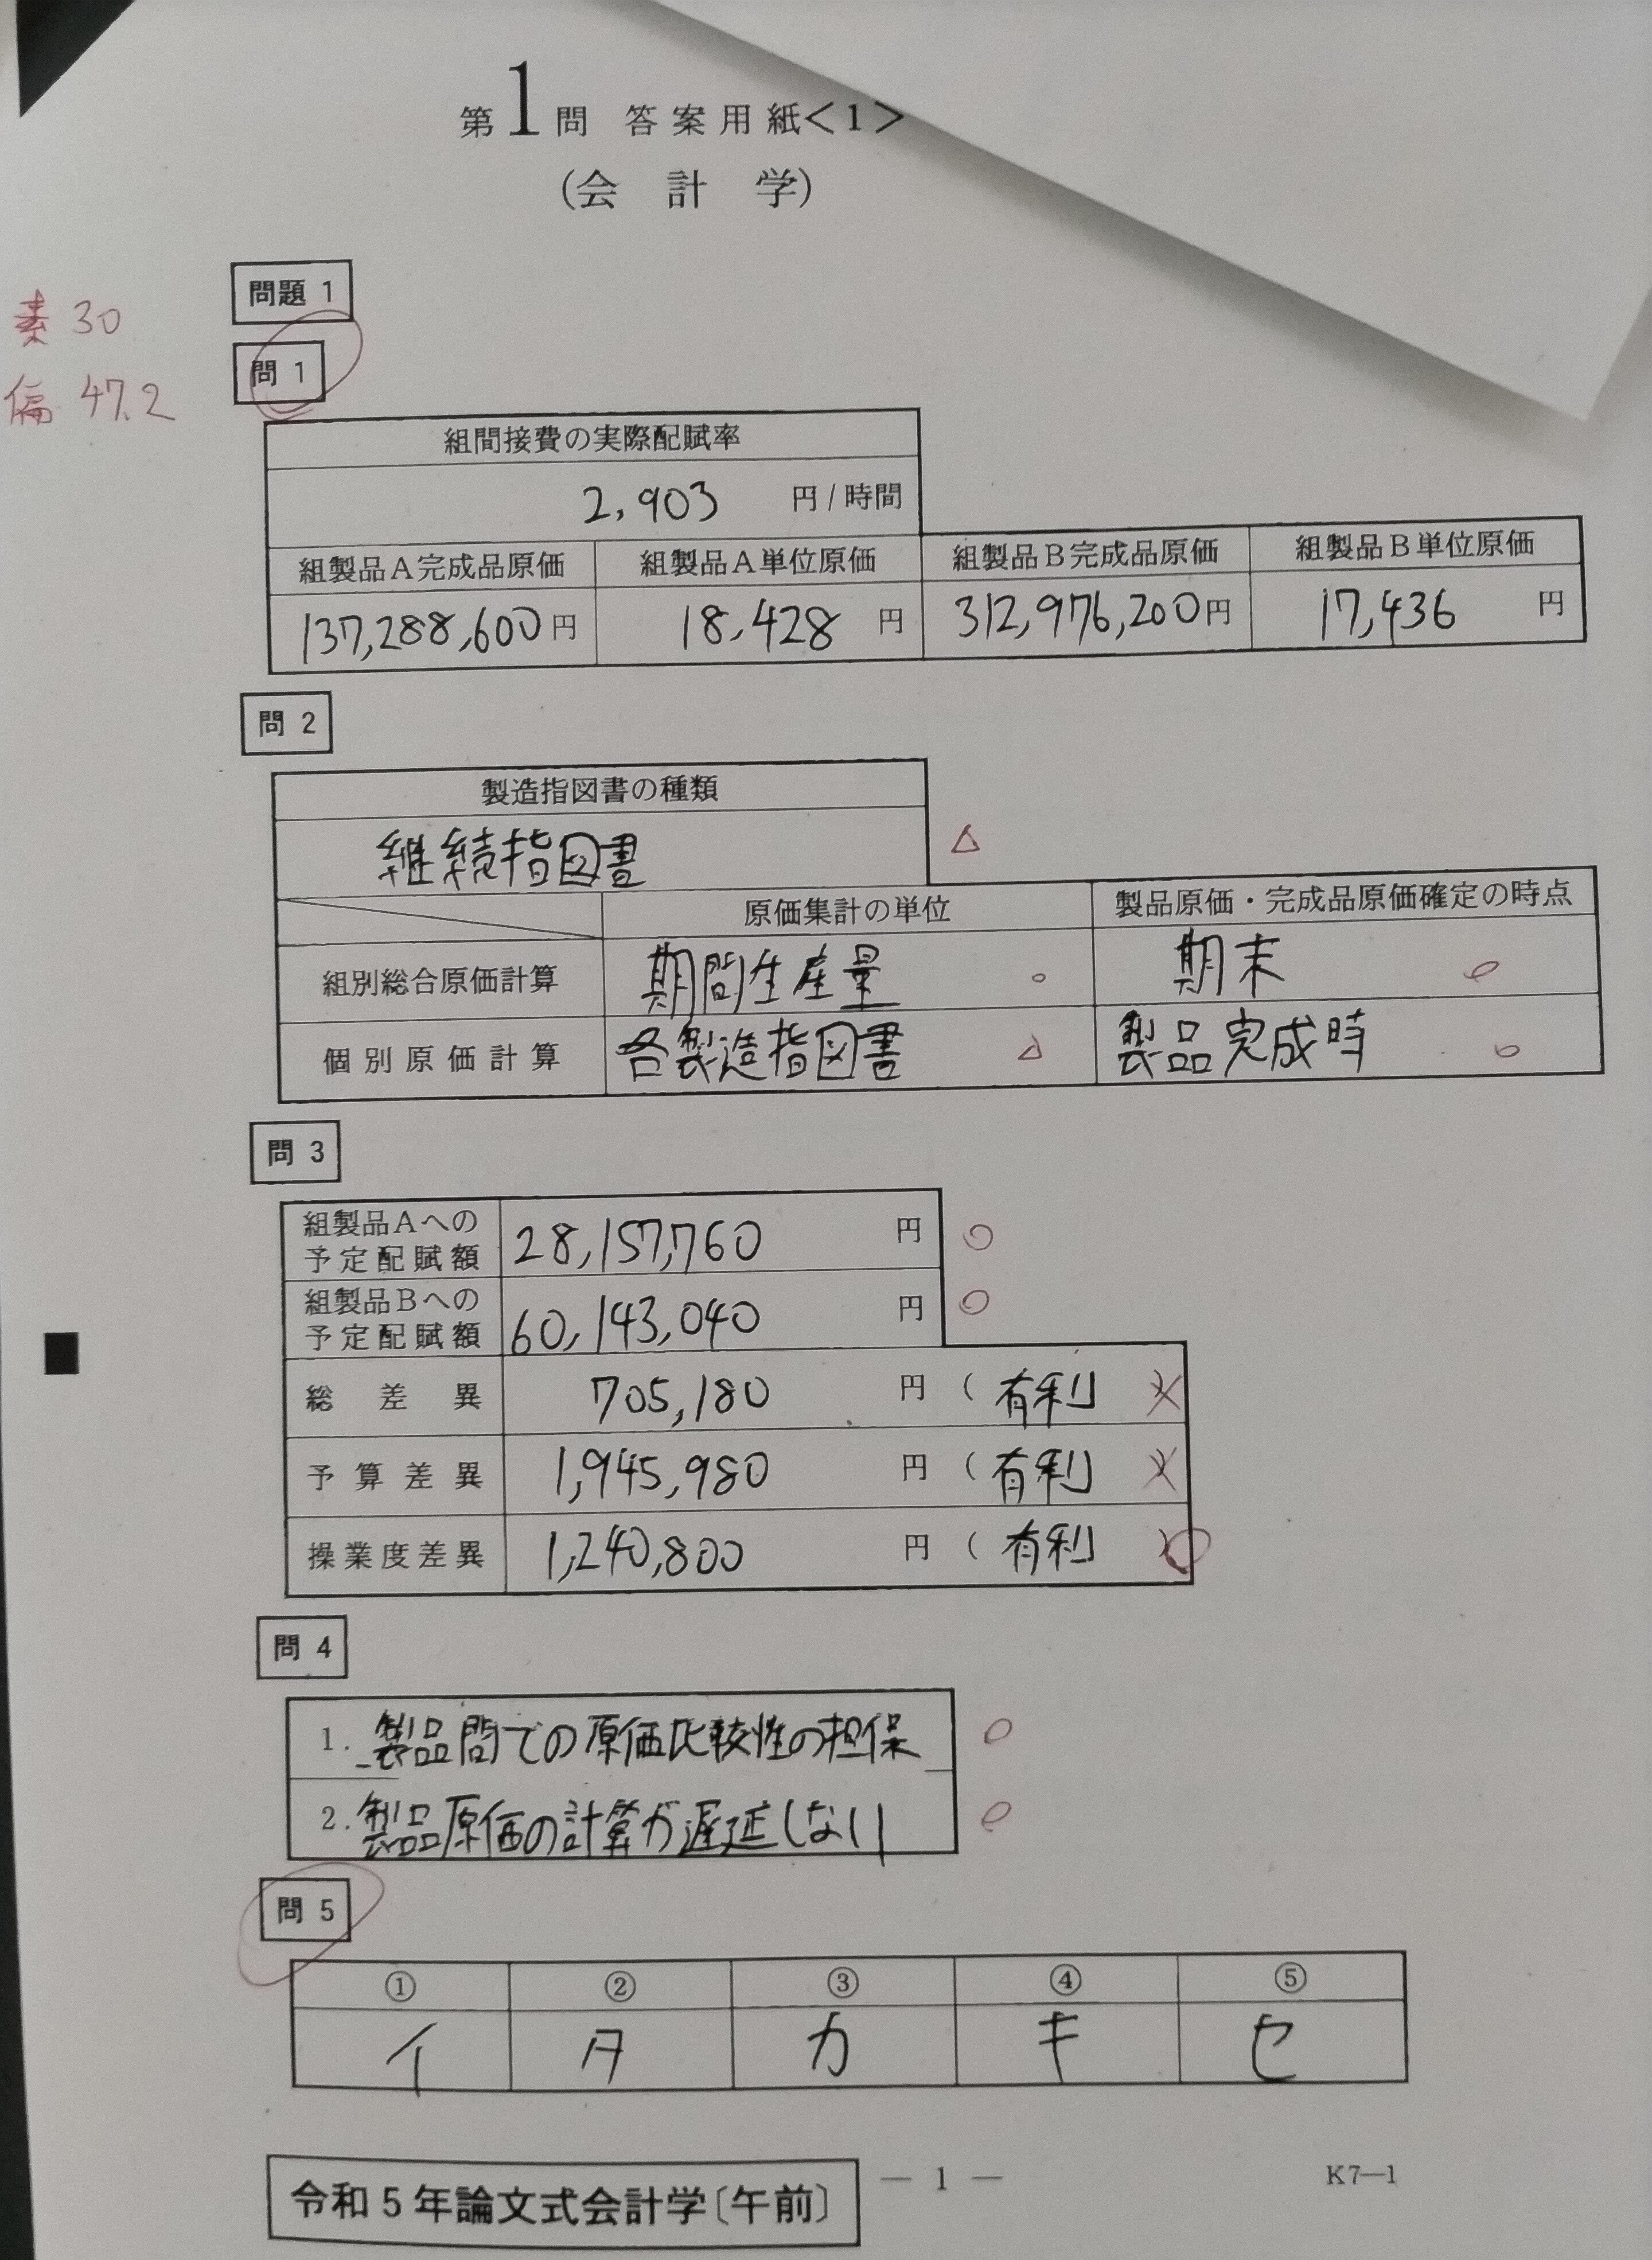 第1問 答案用紙<1>
(会計学)
問題 1
素 30
偏 47.2
問 1
組間接費の実際配賦率
2,903 円/時間
組製品A完成品原価 組製品A単位原価 組製品B完成品原価 組製品B単位原価
137,288,600円 18,428 円 312,976,200円 17,436 円
問 2
製造指図書の種類
継続指図書 △
原価集計の単位 製品原価・完成品原価確定の時点
組別総合原価計算 期間生産量 ○ 期末 ○
個別原価計算 各製造指図書 △ 製品完成時 ○
問 3
組製品Aへの予定配賦額 28,157,760 円 ○
組製品Bへの予定配賦額 60,143,040 円 ○
総差異 705,180 円 (有利) ×
予算差異 1,945,980 円 (有利) ×
操業度差異 1,240,800 円 (有利) ○
問 4
1. 製品間での原価比較性の担保 ○
2. 製品原価の計算が遅延しない ○
問 5
① ② ③ ④ ⑤
イ タ カ キ セ
— 1 —
K7—1
令和5年論文式会計学〔午前〕